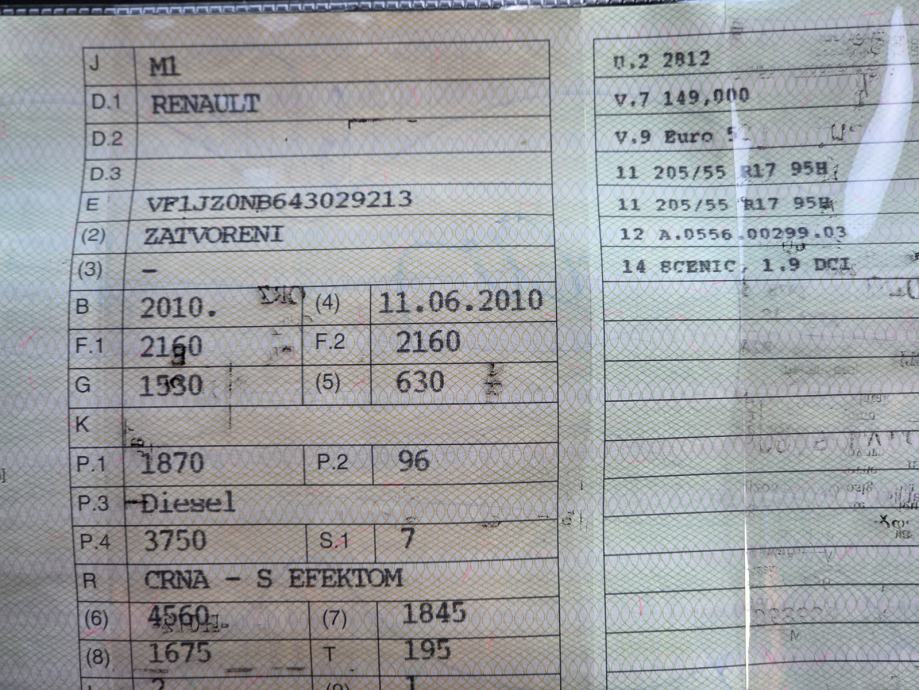 J M1
D.1 RENAULT
D.2
D.3
E VF1JZ0NB643029213
(2) ZATVORENI
(3) –
B 2010. (4) 11.06.2010
F.1 2160 F.2 2160
G 1530 (5) 630
K
P.1 1870 P.2 96
P.3 Diesel
P.4 3750 S.1 7
R CRNA - S EFEKTOM
(6) 4560 (7) 1845
(8) 1675 T 195
U.2 2812
V.7 149,000
V.9 Euro 5
11 205/55 R17 95H
11 205/55 R17 95H
12 A.0556.00299.03
14 SCENIC, 1.9 DCI